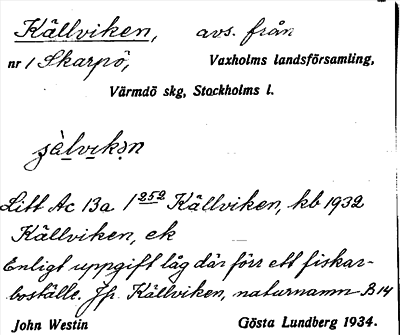 Källviken, avs. från
nr 1 Skarpö, Vaxholms landsförsamling,
Värmdö skg, Stockholms l.
Litt Ac 13a 1 252 Källviken, kb 1932
Källviken, ek
Enligt uppgift låg där förr ett fiskar-
boställe. Jfr Källviken, naturnamn B14
John Westin Gösta Lundberg 1934.